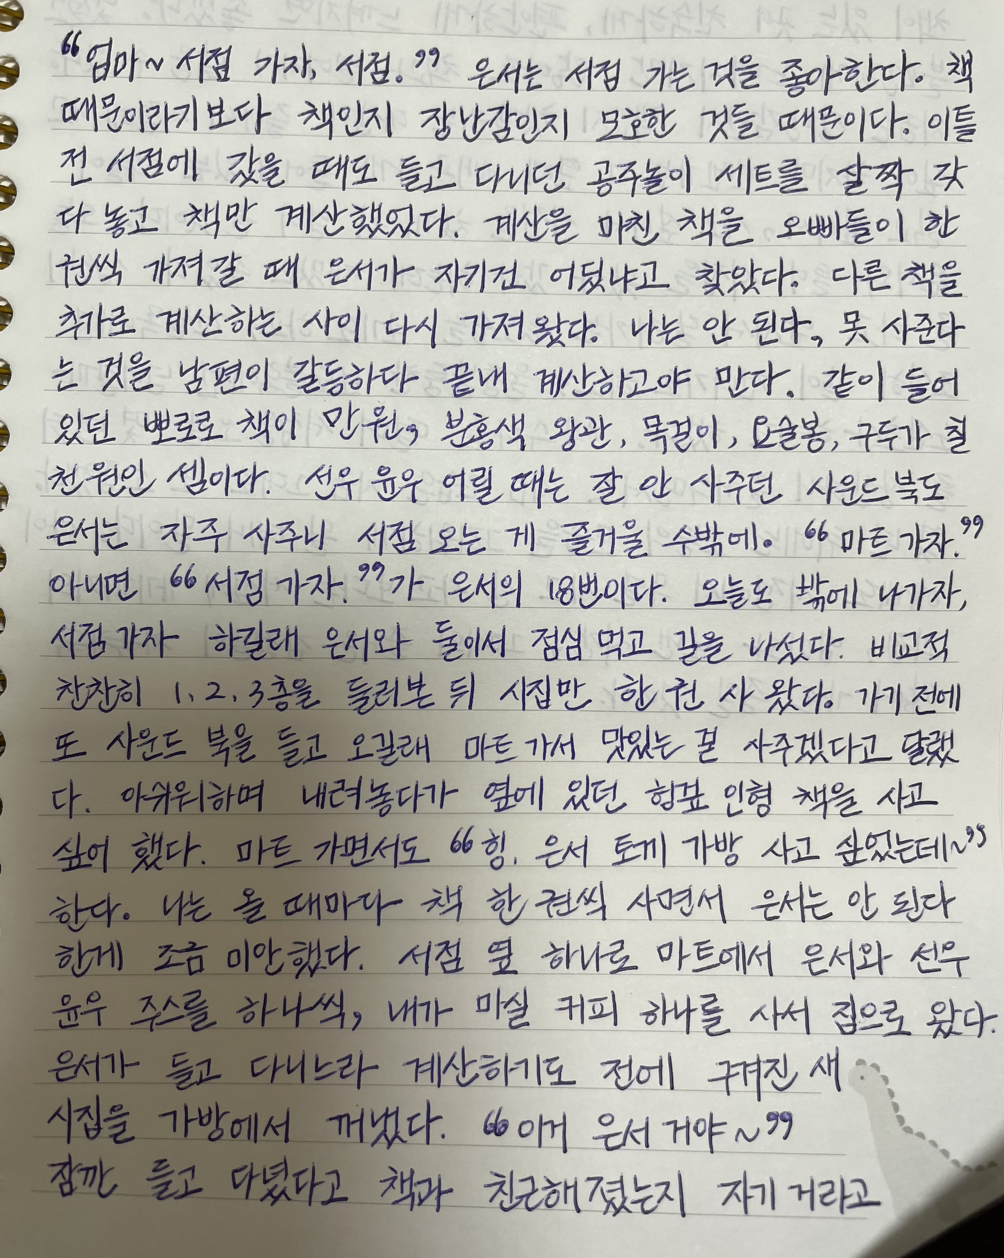 “엄마~ 서점 가자, 서점.” 은서는 서점 가는 것을 좋아한다. 책
때문이라기보다 책인지 장난감인지 모호한 것들 때문이다. 이틀
전 서점에 갔을 때도 들고 다니던 공주놀이 세트를 살짝 갖
다 놓고 책만 계산했었다. 계산을 마친 책을 오빠들이 한
권씩 가져갈 때 은서가 자기건 어딨냐고 찾았다. 다른 책을
추가로 계산하는 사이 다시 가져왔다. 나는 안 된다, 못 사준다
는 것을 남편이 갈등하다 끝내 계산하고야 만다. 같이 들어
있던 뽀로로 책이 만원, 분홍색 왕관, 목걸이, 요술봉, 구두가 칠
천원인 셈이다. 선우 윤우 어릴 때는 잘 안 사주던 사운드북도
은서는 자주 사주니 서점 오는 게 즐거울 수밖에. “마트 가자.”
아니면 “서점 가자.”가 은서의 18번이다. 오늘도 밖에 나가자,
서점가자 하길래 은서와 둘이서 점심 먹고 길을 나섰다. 비교적
찬찬히 1, 2, 3층을 둘러본 뒤 시집만 한 권 사 왔다. 가기 전에
또 사운드 북을 들고 오길래 마트 가서 맛있는 걸 사주겠다고 달랬
다. 아쉬워하며 내려놓다가 옆에 있던 헝겊 인형 책을 사고
싶어 했다. 마트 가면서도 “힝. 은서 토끼 가방 사고 싶었는데~”
한다. 나는 올 때마다 책 한 권씩 사면서 은서는 안 된다
한게 조금 미안했다. 서점 옆 하나로 마트에서 은서와 선우
윤우 주스를 하나씩, 내가 마실 커피 하나를 사서 집으로 왔다.
은서가 들고 다니느라 계산하기도 전에 구겨진 새
시집을 가방에서 꺼냈다. “이거 은서 거야~”
잠깐 들고 다녔다고 책과 친근해졌는지 자기 거라고